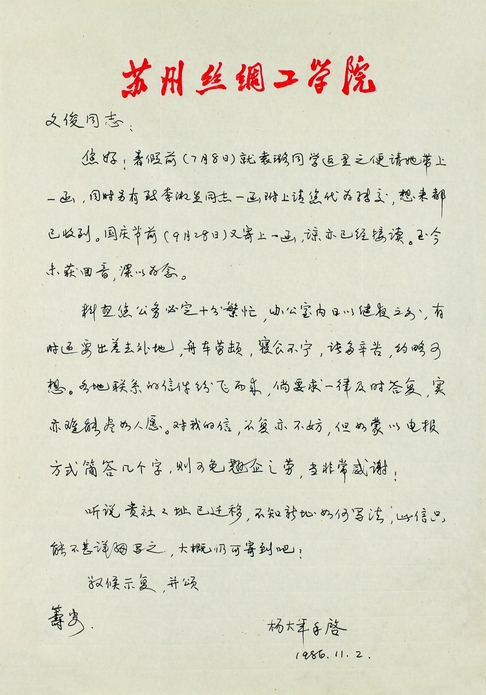 苏州丝绸工学院
文俊同志：
您好！暑假前（7月8日）就袁璐同学返里之便请她带上
一函，同时另有致李淑芝同志一函附上请您代为转交，想来都
已收到。国庆节前（9月28日）又寄上一函，谅亦已经接读。至今
未获回音，深以为念。
料想您公务必定十分繁忙，办公室内日以继夜之外，有
时还要出差去外地，舟车劳顿，寝食不宁，诸多辛苦，约略可
想。各地联系的信件纷飞而来，倘要求一律及时答复，实
亦难能尽如人愿。对我的信，不复亦不妨，但如蒙以电报
方式简答几个字，则可免翘企之劳，当非常感谢！
听说贵社社址已迁移，不知新地如何写法，此信只
能不甚详细写之，大概仍可寄到吧！
敬候示复，并颂
筹安
杨大年手启
1986.11.2.